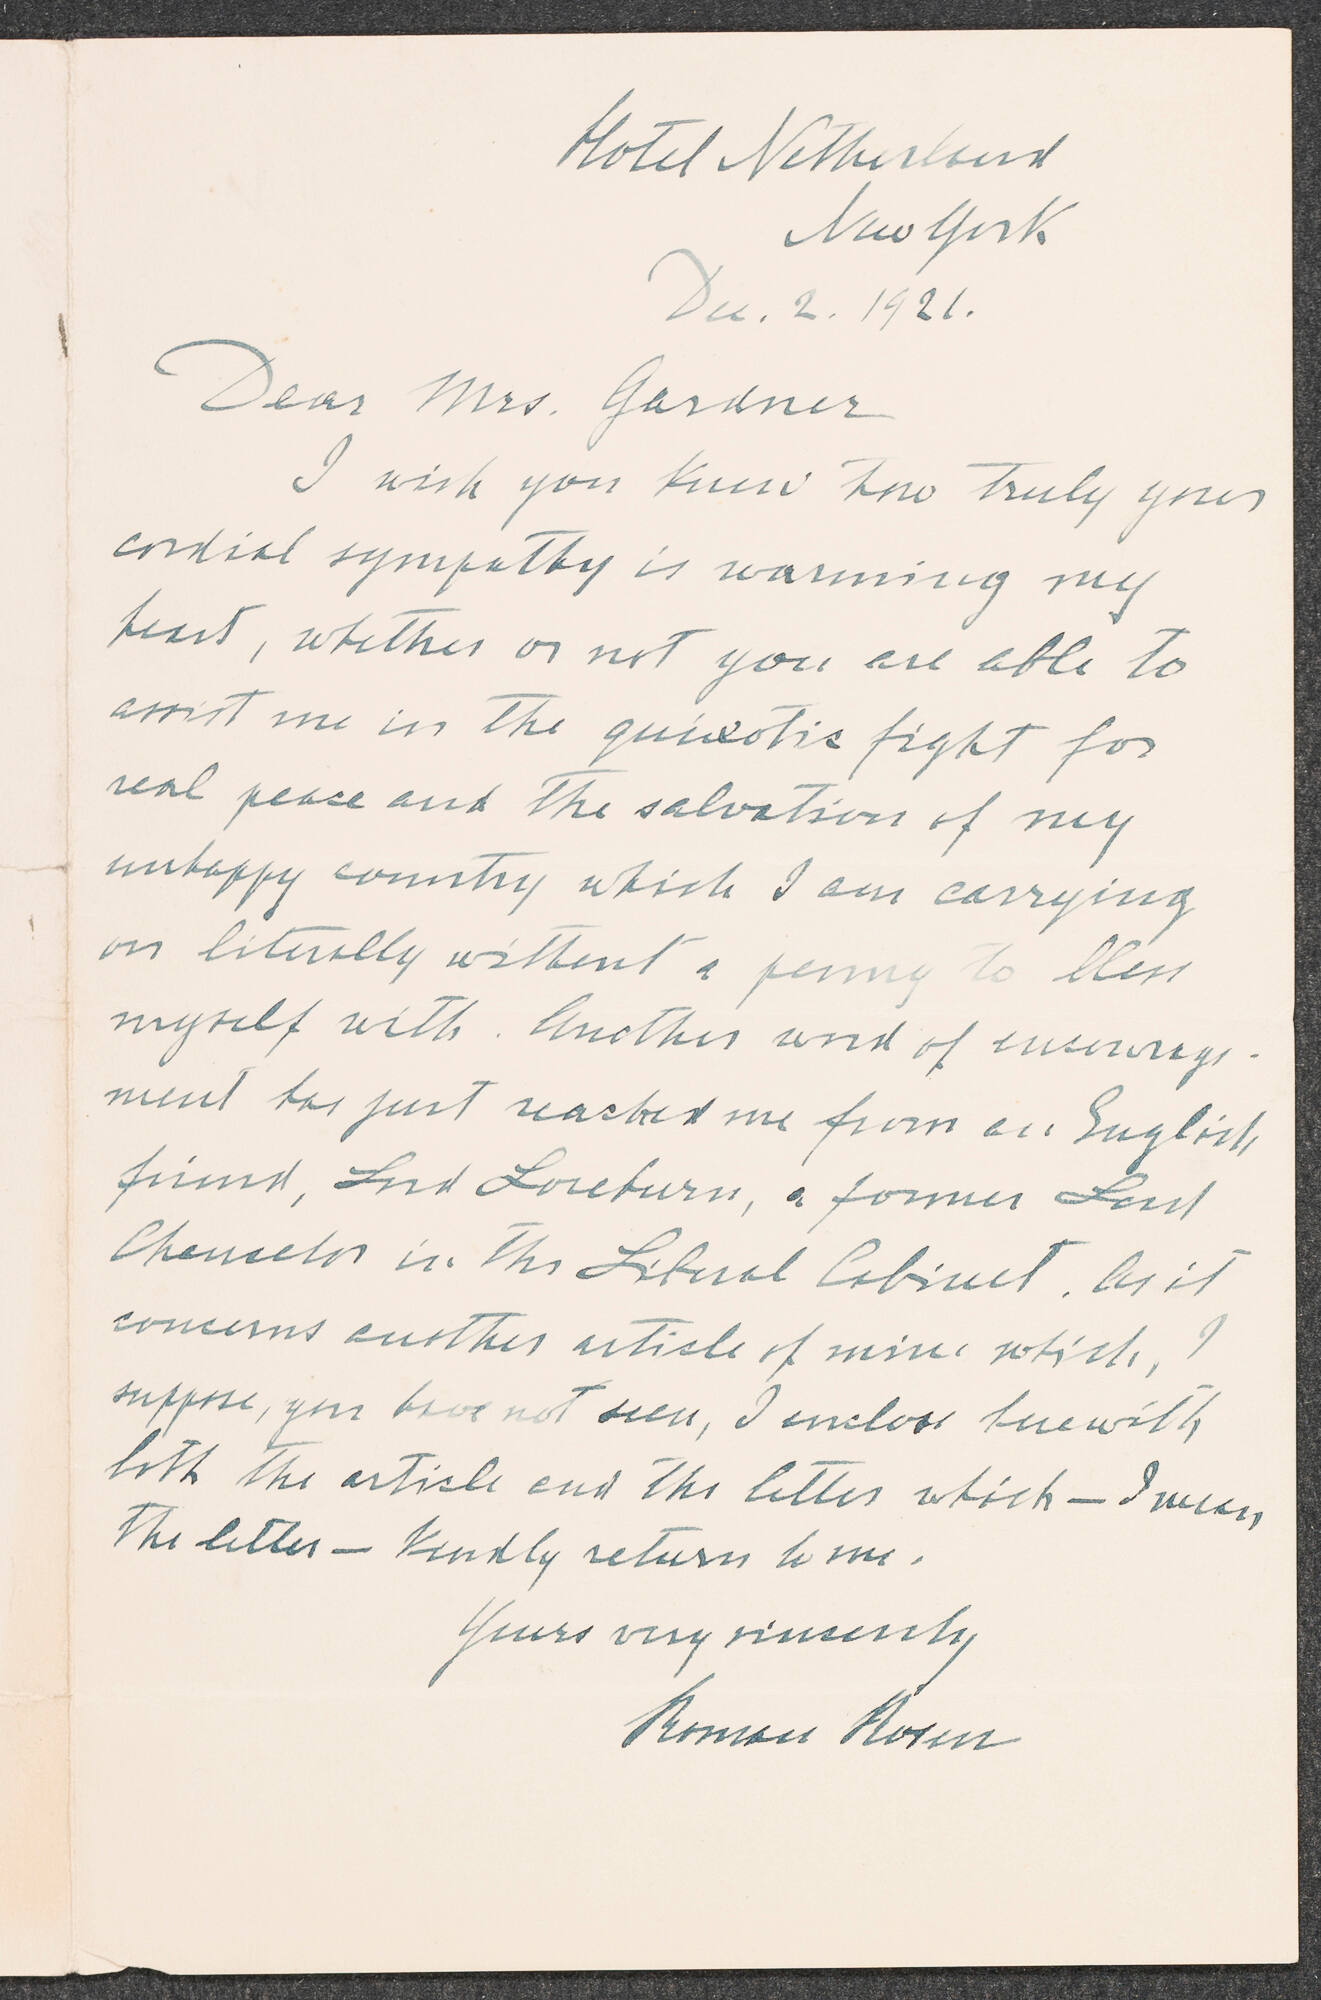 Hotel Netherland
New York
Dec. 2. 1921.
Dear Mrs. Gardner
I wish you knew how truly your
cordial sympathy is warming my
heart, whether or not you are able to
assist me in the quixotic fight for
real peace and the salvation of my
unhappy country which I am carrying
on literally without a penny to bless
myself with. Another word of encourage-
ment has just reached me from an English
friend, Lord Loreburn, a former Lord
Chancelor in the Liberal Cabinet. As it
concerns another article of mine which, I
suppose, you have not seen, I enclose herewith
both the article and the letter which — I mean
the letter — kindly return to me.
Yours very sincerely
Roman Rosen